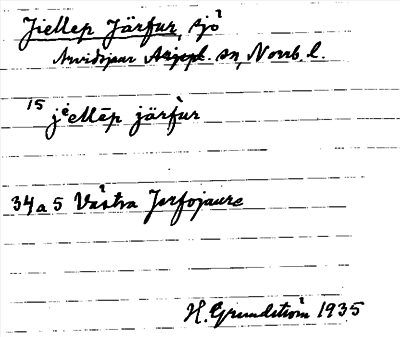 Jiellep Järfur, sjö
Arvidsjaur sn, Norrb. l.
15 jiellēp järfùr
34a5 Västra Jerfojaure
H. Grundström 1935